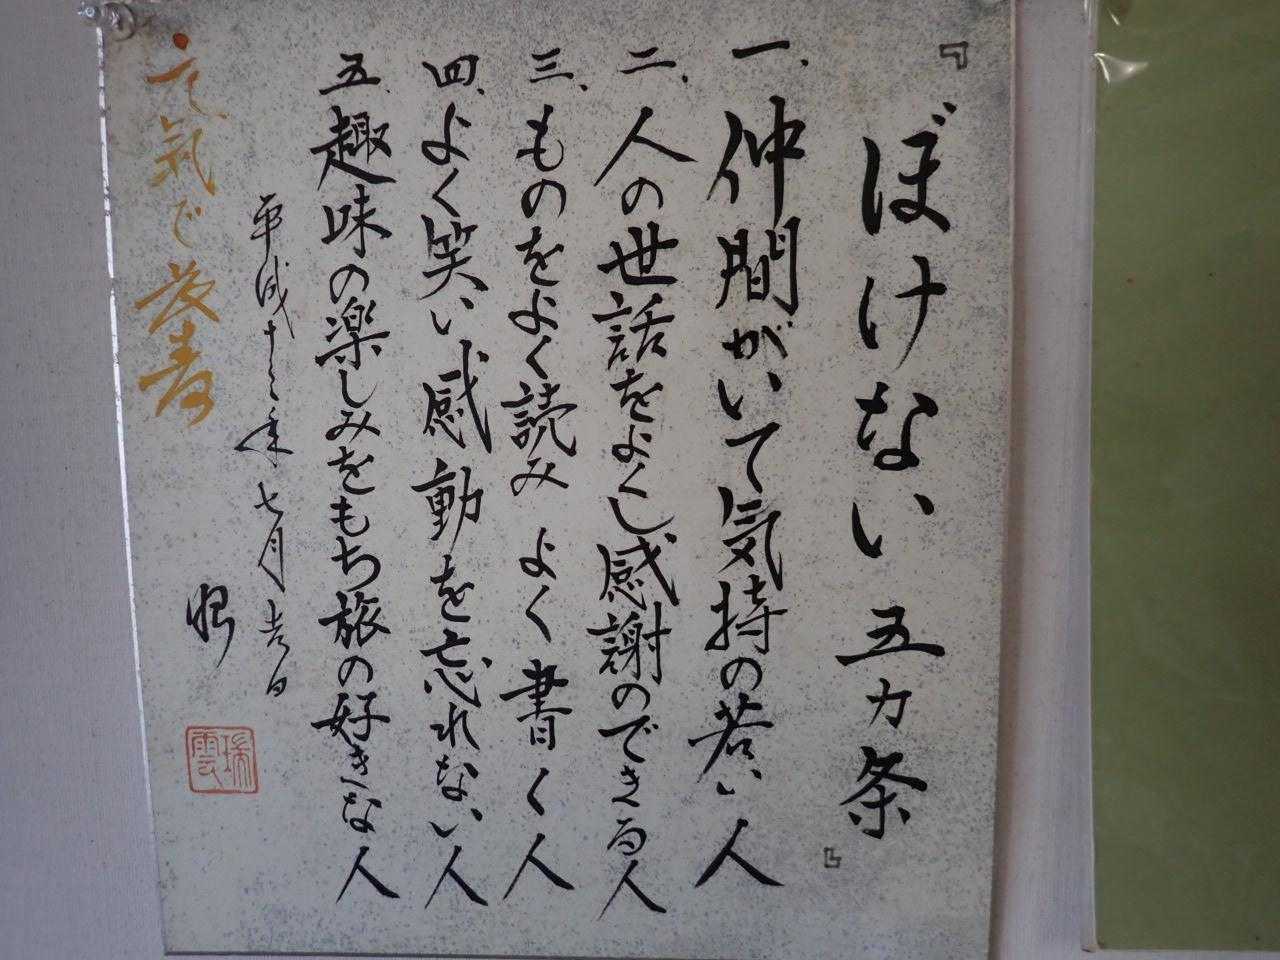 『ぼけない五カ条』
一、仲間がいて気持の若い人
二、人の世話をよくし感謝のできる人
三、ものをよく読みよく書く人
四、よく笑い感動を忘れない人
五、趣味の楽しみをもち旅の好きな人
平成十二年七月吉日
元氣で長寿
瑞雲